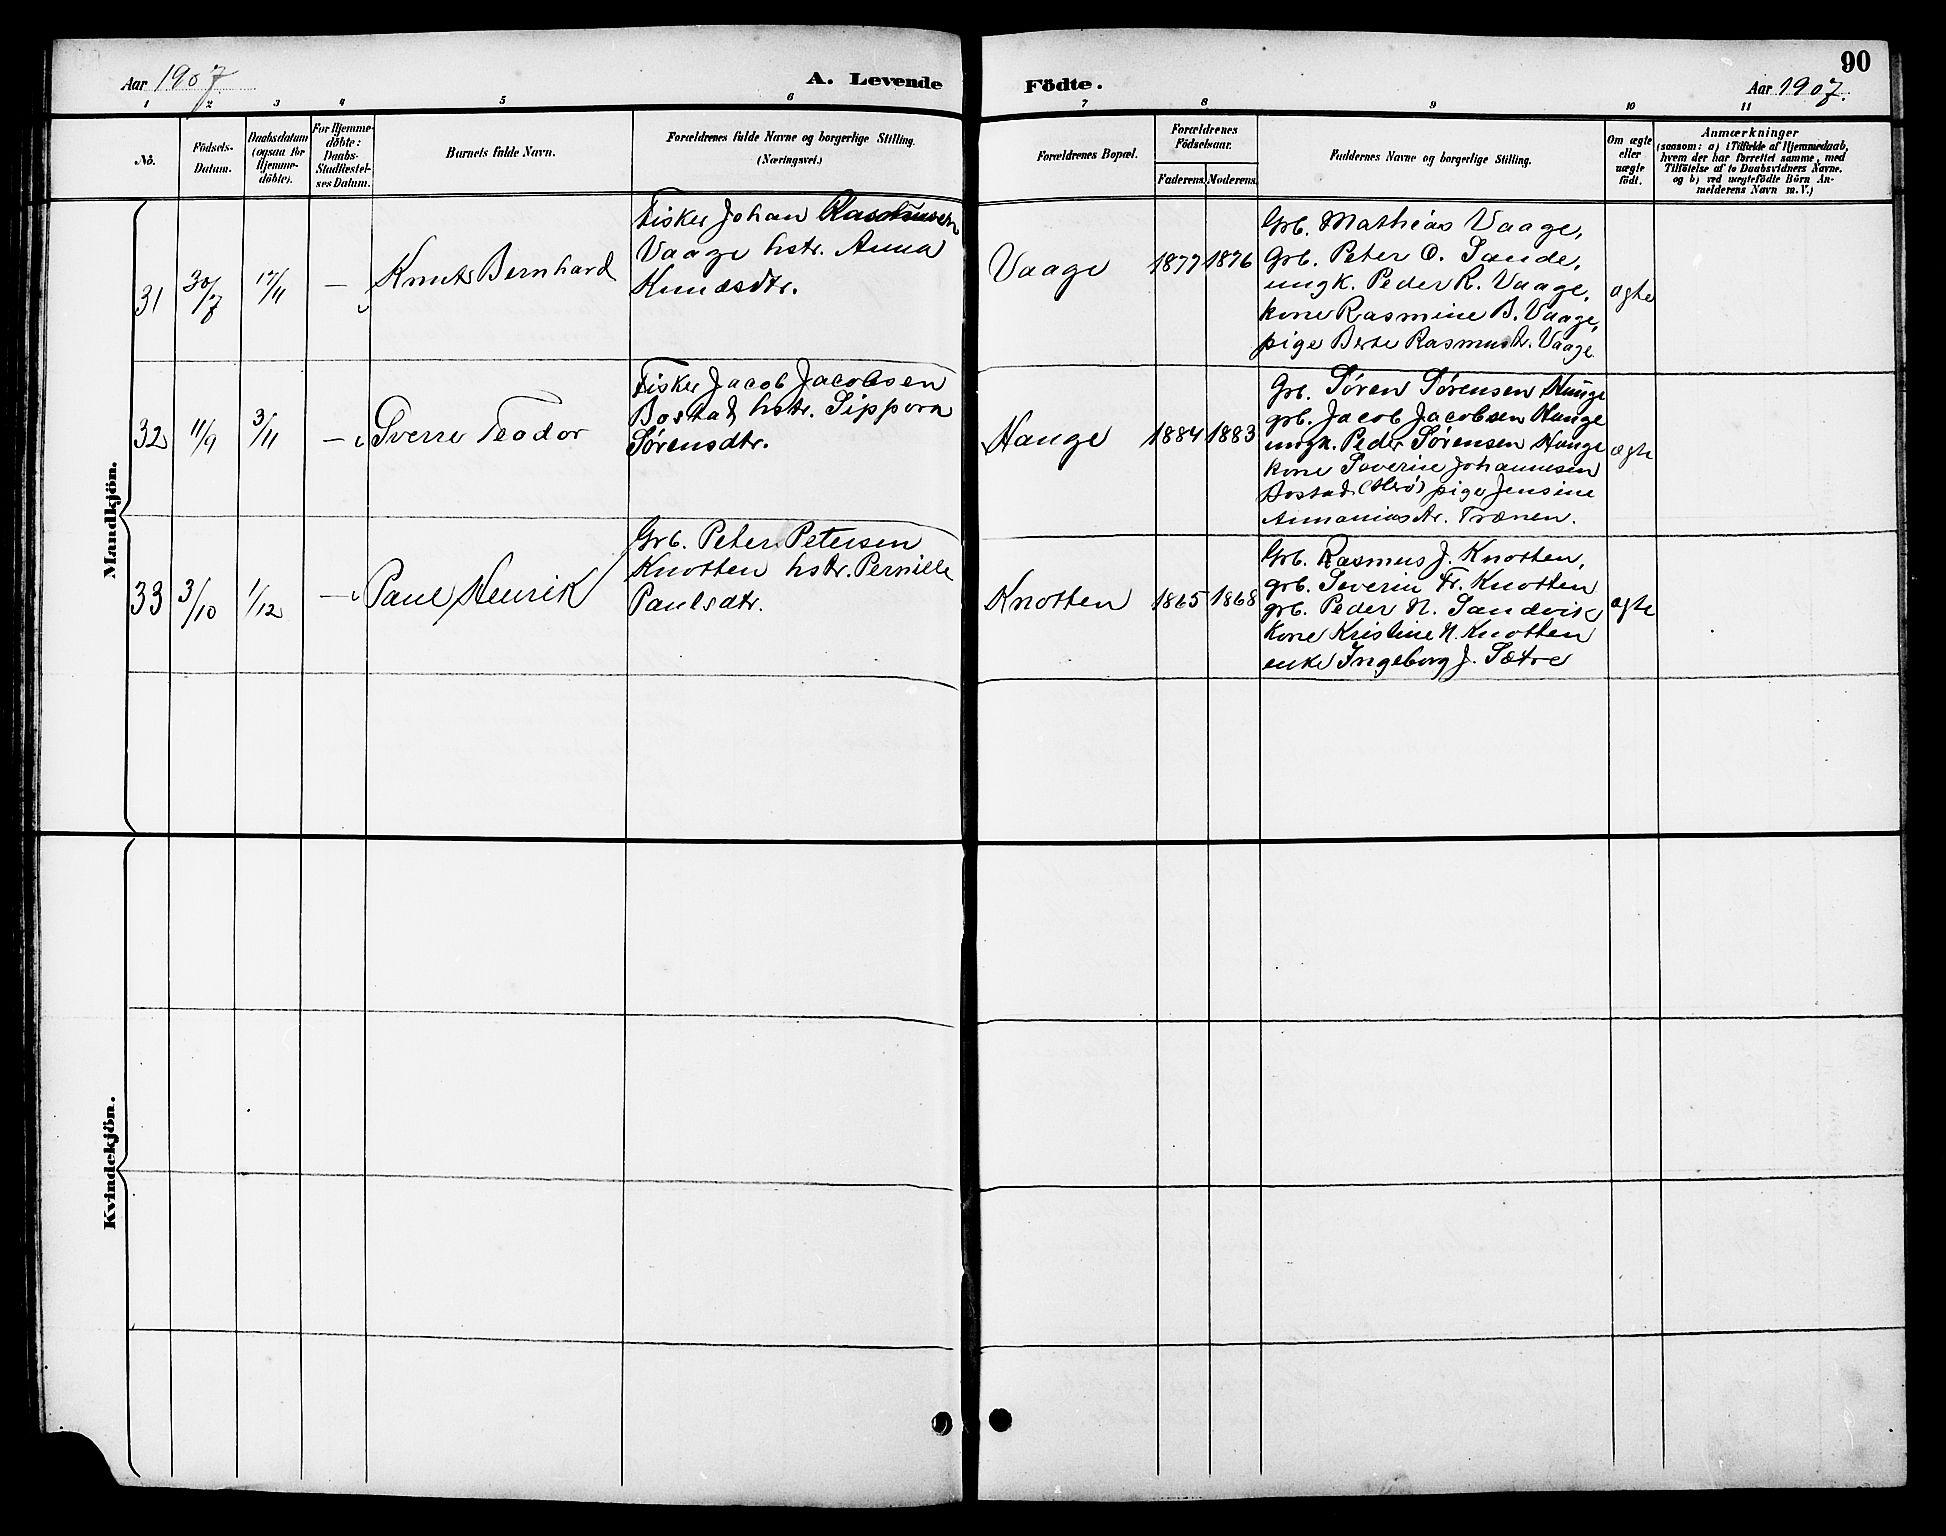 90
Aar 1907.
A. Levende
Födte.
Aar 1907.
1 2 3 4 5 6 7 8 9 10 11
No.
Födsels-
Datum.
Daabsdatum
(ogsaa for
Hjemme-
döbte).
For Hjemme-
döbte:
Daabs-
Stadfæstel-
ses Datum.
Barnets fulde Navn.
Forældrenes fulde Navne og borgerlige Stilling.
(Næringsvei.)
Forældrenes Bopæl.
Forældrenes
Födselsaar.
Faderens. Moderens.
Faddernes Navne og borgerlige Stilling.
Om ægte
eller
uægte
födt.
Anmærkninger
(saasom: a) i Tilfælde af Hjemmedaab,
hvem der har forrettet samme, med
Tilföielse af to Daabsvidners Navne.
og b) ved uægtefödte Börn An-
melderens Navn m. V.)
Mandkjön.
31
30/7
17/11
—
Knut Bernhard
Fisker Johan Rasmussen
Vaage hstr. Anna
Knudsdtr.
Vaage
1877
1876
Grb. Mathias Vaage,
Grb. Peter O. Sande,
ungk. Peder R. Vaage,
kone Rasmine B. Vaage,
pige Berte Rasmusdr. Vaage
ægte
32
11/9
3/11
—
Sverre Teodor
Fisker Jacob Jacobsen
Bostad, hstr. Sippora
Sørensdtr.
Hauge
1884
1883
Grb. Søren Sørensen Hauge
grb. Jacob Jacobsen Hauge
ungk. Peder Sørensen Hauge
kone Severine Johannesen
Bostad (Herø) pige Jensine
Annaniasdr. Trænen.
ægte
33
3/10
1/12
—
Paul Henrik
Grb. Peter Petersen
Knotten hstr. Pernille
Paulsdtr.
Knotten
1865
1868
Grb. Rasmus J. Knotten,
grb. Severin Fr. Knotten
grb. Peder N. Sandvik
kone Kristine N. Knotten
enke Ingeborg J. Sætre
ægte
Kvindekjön.